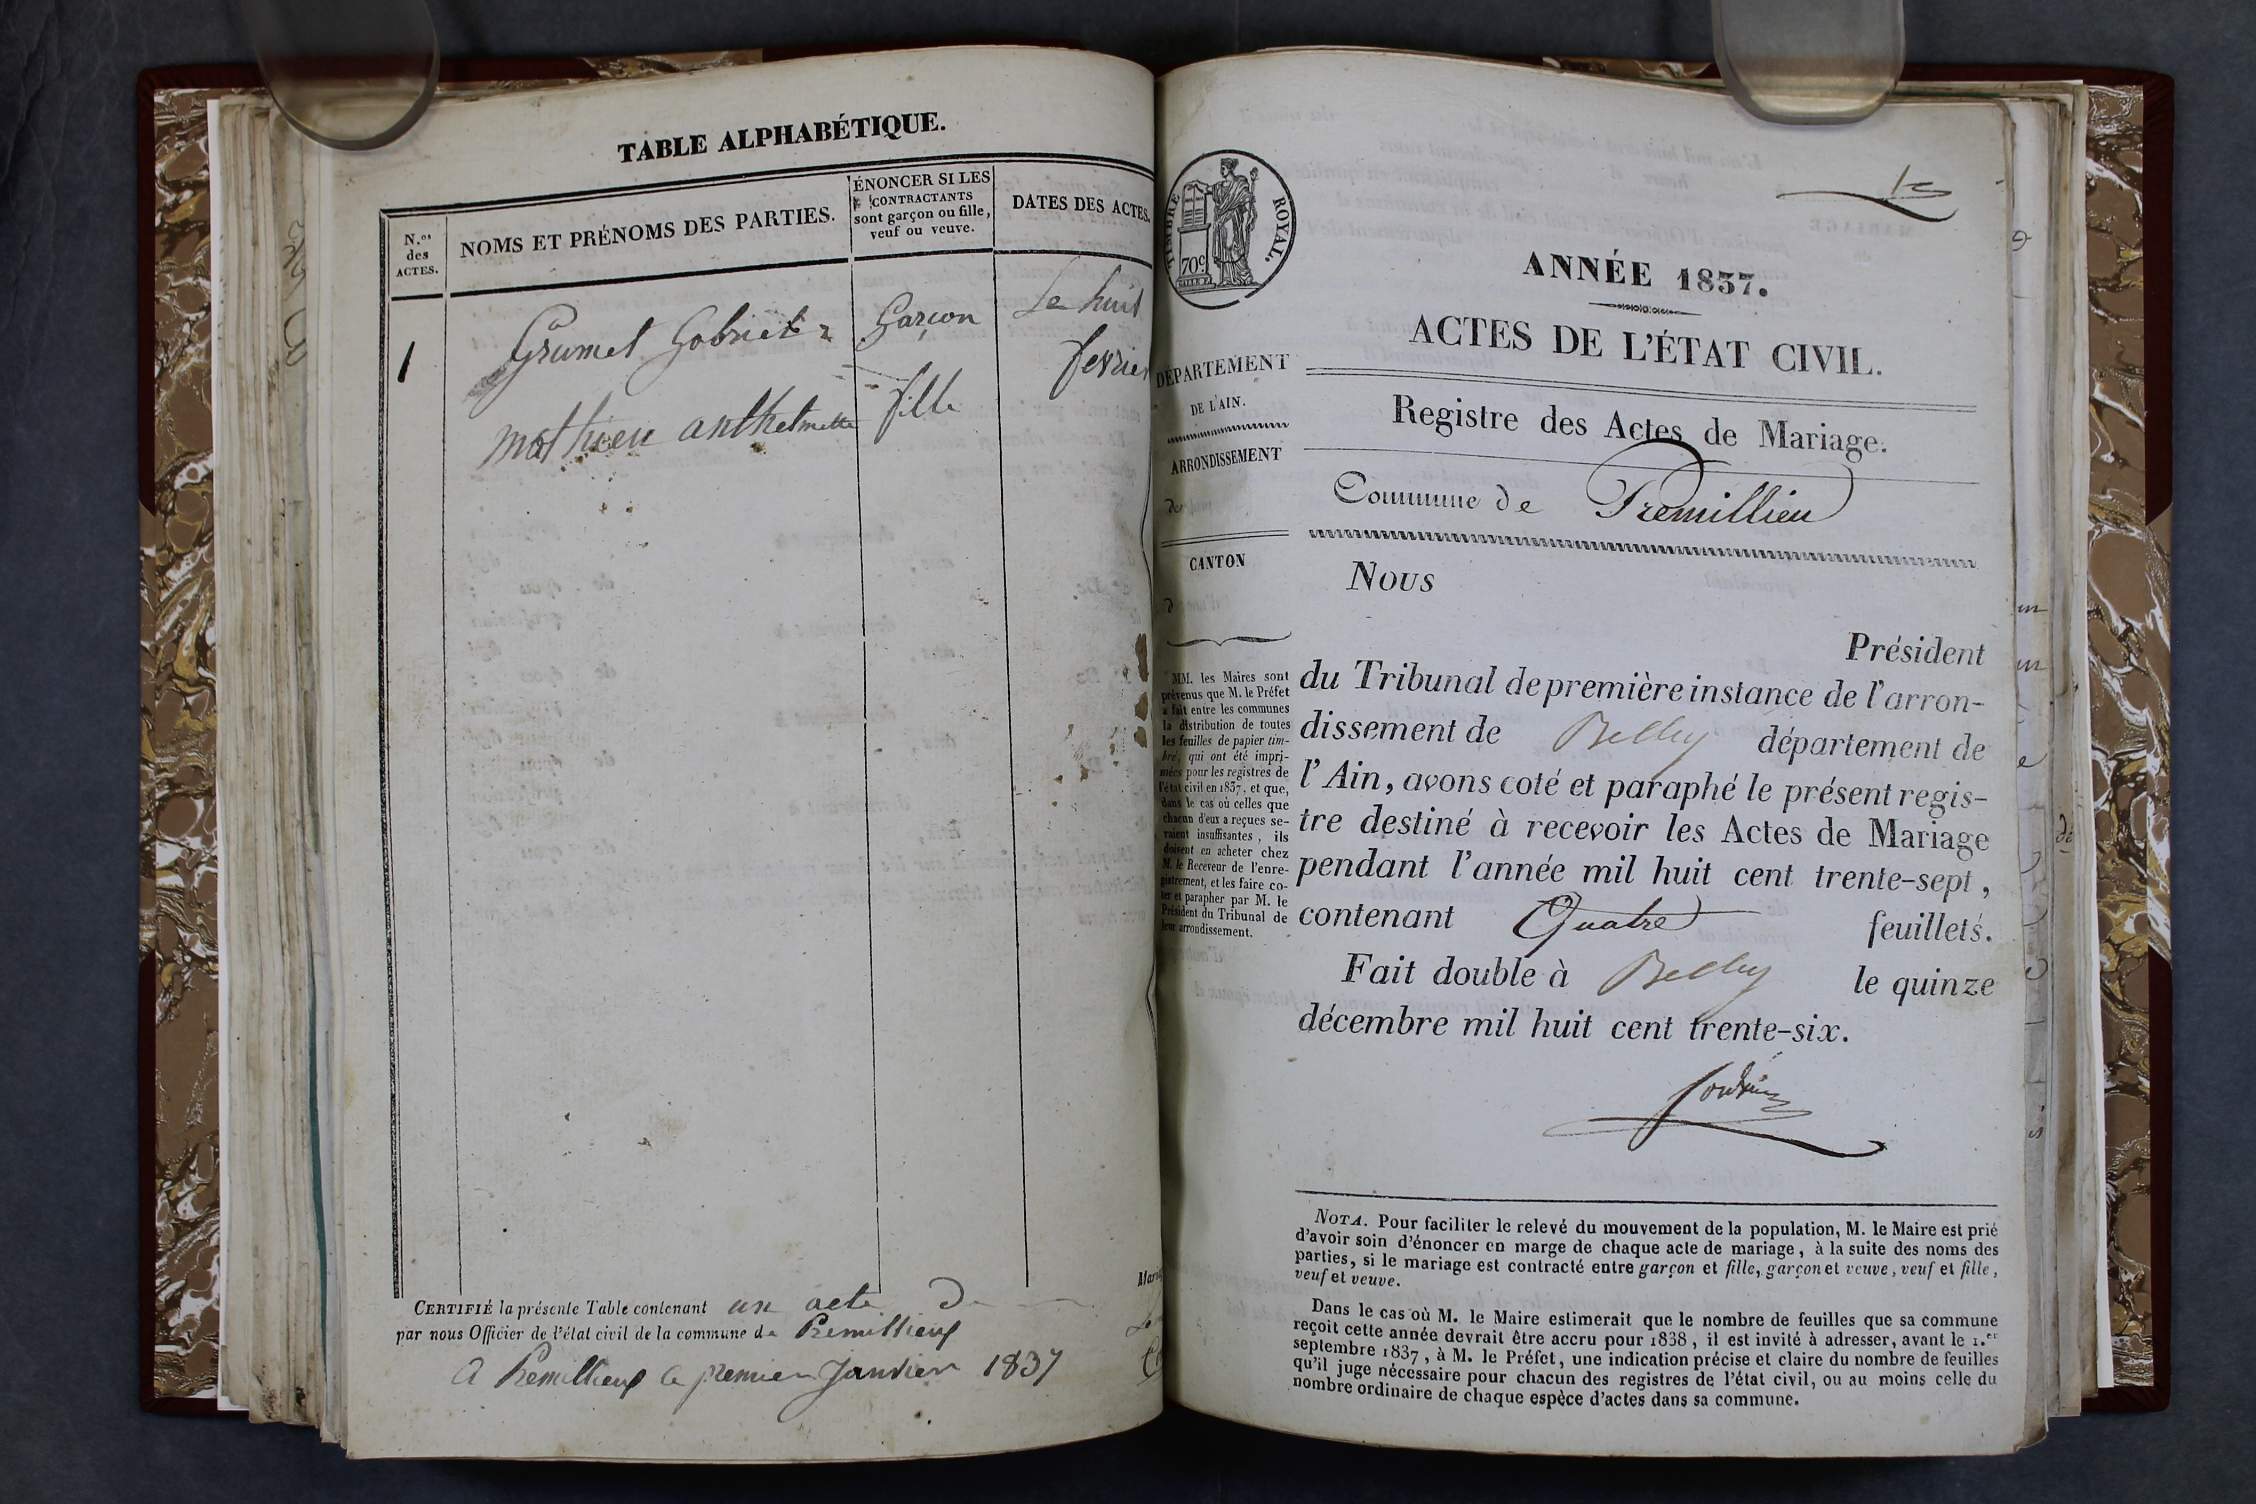 TABLE ALPHABÉTIQUE.
N.os des ACTES.
NOMS ET PRÉNOMS DES PARTIES.
ÉNONCER SI LES
CONTRACTANTS
sont garçon ou fille,
veuf ou veuve.
DATES DES ACTES.
1
Grumet Gabriel
Garçon
Le huit
fevrier
mathieu anthelmette
fille
CERTIFIÉ la présente Table contenant un acte
par nous Officier de l'état civil de la commune de Premillieux
A Premillieux le premier Janvier 1837
1
TIMBRE ROYAL.
70c
ANNÉE 1837.
ACTES DE L'ÉTAT CIVIL.
DÉPARTEMENT
DE L'AIN.
ARRONDISSEMENT
de
CANTON
d
Registre des Actes de Mariage.
Commune de Premillieu
Nous
Président
du Tribunal de première instance de l'arron-
dissement de Belley département de
l'Ain, avons coté et paraphé le présent regis-
tre destiné à recevoir les Actes de Mariage
pendant l'année mil huit cent trente-sept,
contenant Quatre feuillets.
Fait double à Belley le quinze
décembre mil huit cent trente-six.
MM. les Maires sont
prévenus que M. le Préfet
a fait entre les communes
la distribution de toutes
les feuilles de papier tim-
bré, qui ont été impri-
mées pour les registres de
l'état civil en 1837, et que,
dans le cas où celles que
chacun d'eux a reçues se-
raient insuffisantes, ils
doivent en acheter chez
M. le Receveur de l'enre-
gistrement, et les faire co-
ter et parapher par M. le
Président du Tribunal de
leur arrondissement.
NOTA. Pour faciliter le relevé du mouvement de la population, M. le Maire est prié
d'avoir soin d'énoncer en marge de chaque acte de mariage, à la suite des noms des
parties, si le mariage est contracté entre garçon et fille, garçon et veuve, veuf et fille,
veuf et veuve.
Dans le cas où M. le Maire estimerait que le nombre de feuilles que sa commune
reçoit cette année devrait être accru pour 1838, il est invité à adresser, avant le 1.er
septembre 1837, à M. le Préfet, une indication précise et claire du nombre de feuilles
qu'il juge nécessaire pour chacun des registres de l'état civil, ou au moins celle du
nombre ordinaire de chaque espèce d'actes dans sa commune.